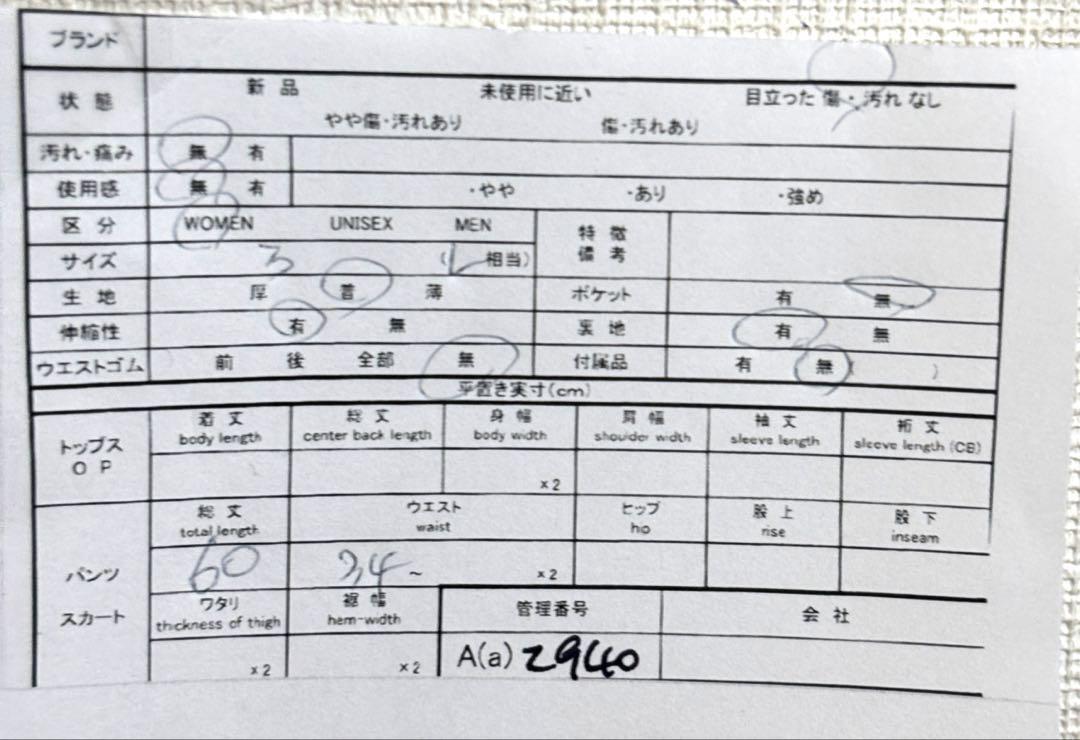 ブランド
状態 新品 未使用に近い 目立った傷・汚れなし
やや傷・汚れあり 傷・汚れあり
汚れ・痛み 無 有
使用感 無 有 ・やや ・あり ・強め
区分 WOMEN UNISEX MEN 特徴
備考
サイズ 3 (L 相当)
生地 厚 普 薄 ポケット 有 無
伸縮性 有 無 裏地 有 無
ウエストゴム 前 後 全部 無 付属品 有 無( )
平置き実寸(cm)
トップス
OP
着丈 総丈 身幅 肩幅 袖丈 裄丈
body length center back length body width shoulder width sleeve length sleeve length (CB)
×2
総丈 ウエスト ヒップ 股上 股下
total length waist hip rise inseam
パンツ 60 34 ~ ×2
スカート ワタリ 裾幅 管理番号 会社
thickness of thigh hem-width
×2 ×2 A(a) 2940